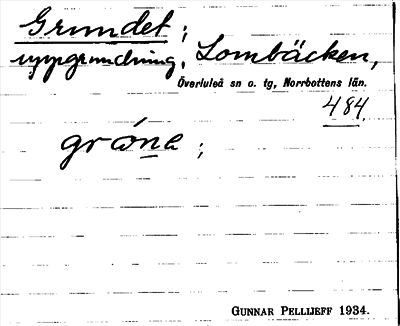 Grundet;
uppgrundning, Lombäcken,
Överluleå sn o. tg, Norrbottens län.
484.
gróna;
GUNNAR PELLIJEFF 1934.